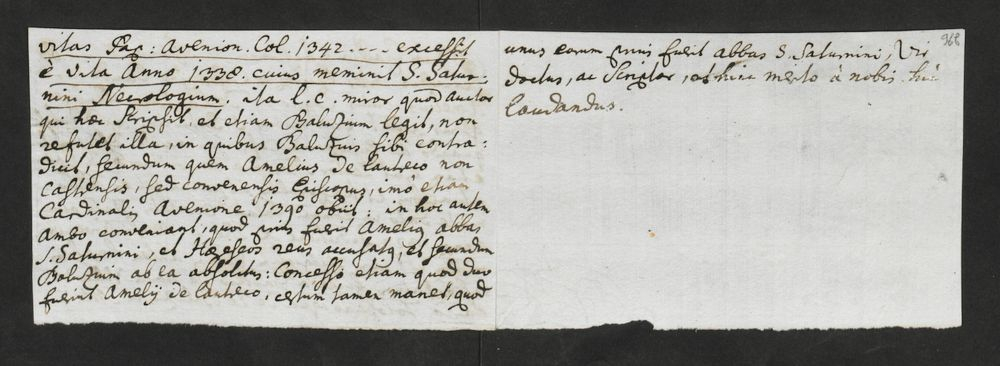 vitas Pap: Avenion. Col. 1342. --- excessit
è vita Anno 1338. cuius meminit S. Satur-
nini Necrologium. ita l. c. miror quod auctor
qui hæc scripsit, et etiam Baluzium legit, non
refutet illa, in quibus Baluzius sibi contra-
dicit, secundum quem Amelius de Lautreco non
Castrensis, sed convenensis Episcopus, imò etiam
Cardinalis Avenione 1390 obiit: in hoc autem
ambo conveniant, quod prius fuerit Amelius abbas
S. Saturnini, et Hæreseos reus accusatus, et secundum
Baluzium ab ea absolutus: Concesso etiam quod duo
fuerint Amelij de Lautreco, certum tamen manet, quod
968
unus eorum prius fuerit abbas S. Saturnini, Vir
doctus, ac Scriptor, et hinc merito à nobis hic
laudandus.